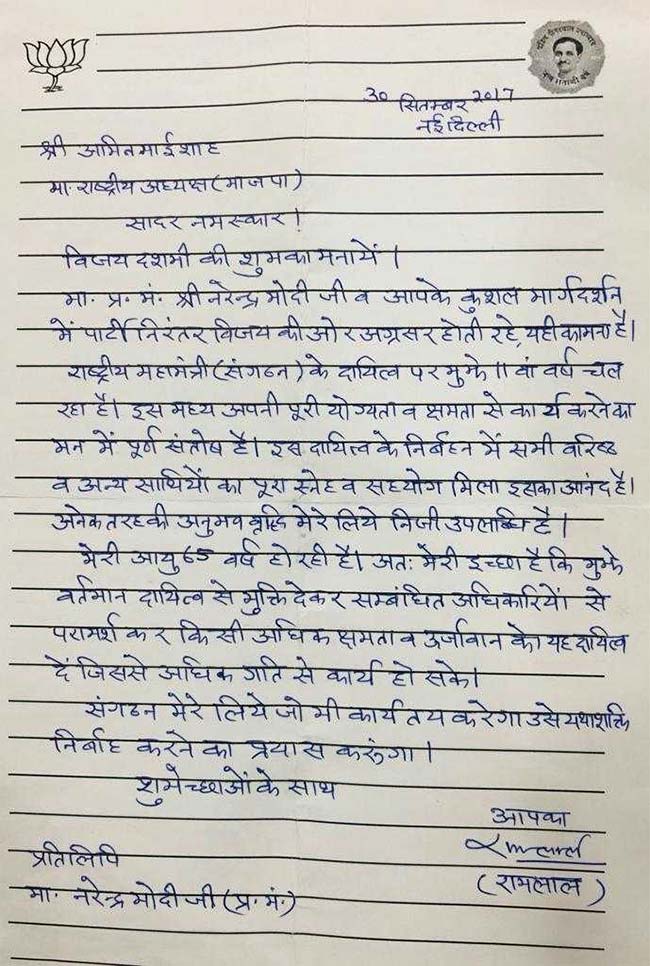 30 सितम्बर 2017
नई दिल्ली
श्री अमितभाई शाह
मा. राष्ट्रीय अध्यक्ष (भाजपा)
सादर नमस्कार !
विजय दशमी की शुभकामनायें ।
मा. प्र. मं. श्री नरेन्द्र मोदी जी व आपके कुशल मार्गदर्शन
में पार्टी निरंतर विजय की ओर अग्रसर होती रहे, यही कामना है।
राष्ट्रीय महामंत्री (संगठन) के दायित्व पर मुझे 11 वां वर्ष चल
रहा है। इस मध्य अपनी पूरी योग्यता व क्षमता से कार्य करने का
मन में पूर्ण संतोष है। इस दायित्व के निर्बहन में सभी वरिष्ठ
व अन्य साथियों का पूरा स्नेह व सहयोग मिला इसका आनंद है।
अनेक तरह की अनुभव वृद्धि मेरे लिये निजी उपलब्धि है।
मेरी आयु 65 वर्ष हो रही है। अतः मेरी इच्छा है कि मुझे
वर्तमान दायित्व से मुक्ति देकर सम्बंधित अधिकारियों से
परामर्श कर किसी अधिक क्षमता व ऊर्जावान को यह दायित्व
दें जिससे अधिक गति से कार्य हो सके।
संगठन मेरे लिये जो भी कार्य तय करेगा उसे यथाशक्ति
निर्बाह करने का प्रयास करूंगा ।
शुभेच्छाओं के साथ
आपका
(रामलाल)
प्रतिलिपि
मा. नरेन्द्र मोदी जी (प्र. मं.)